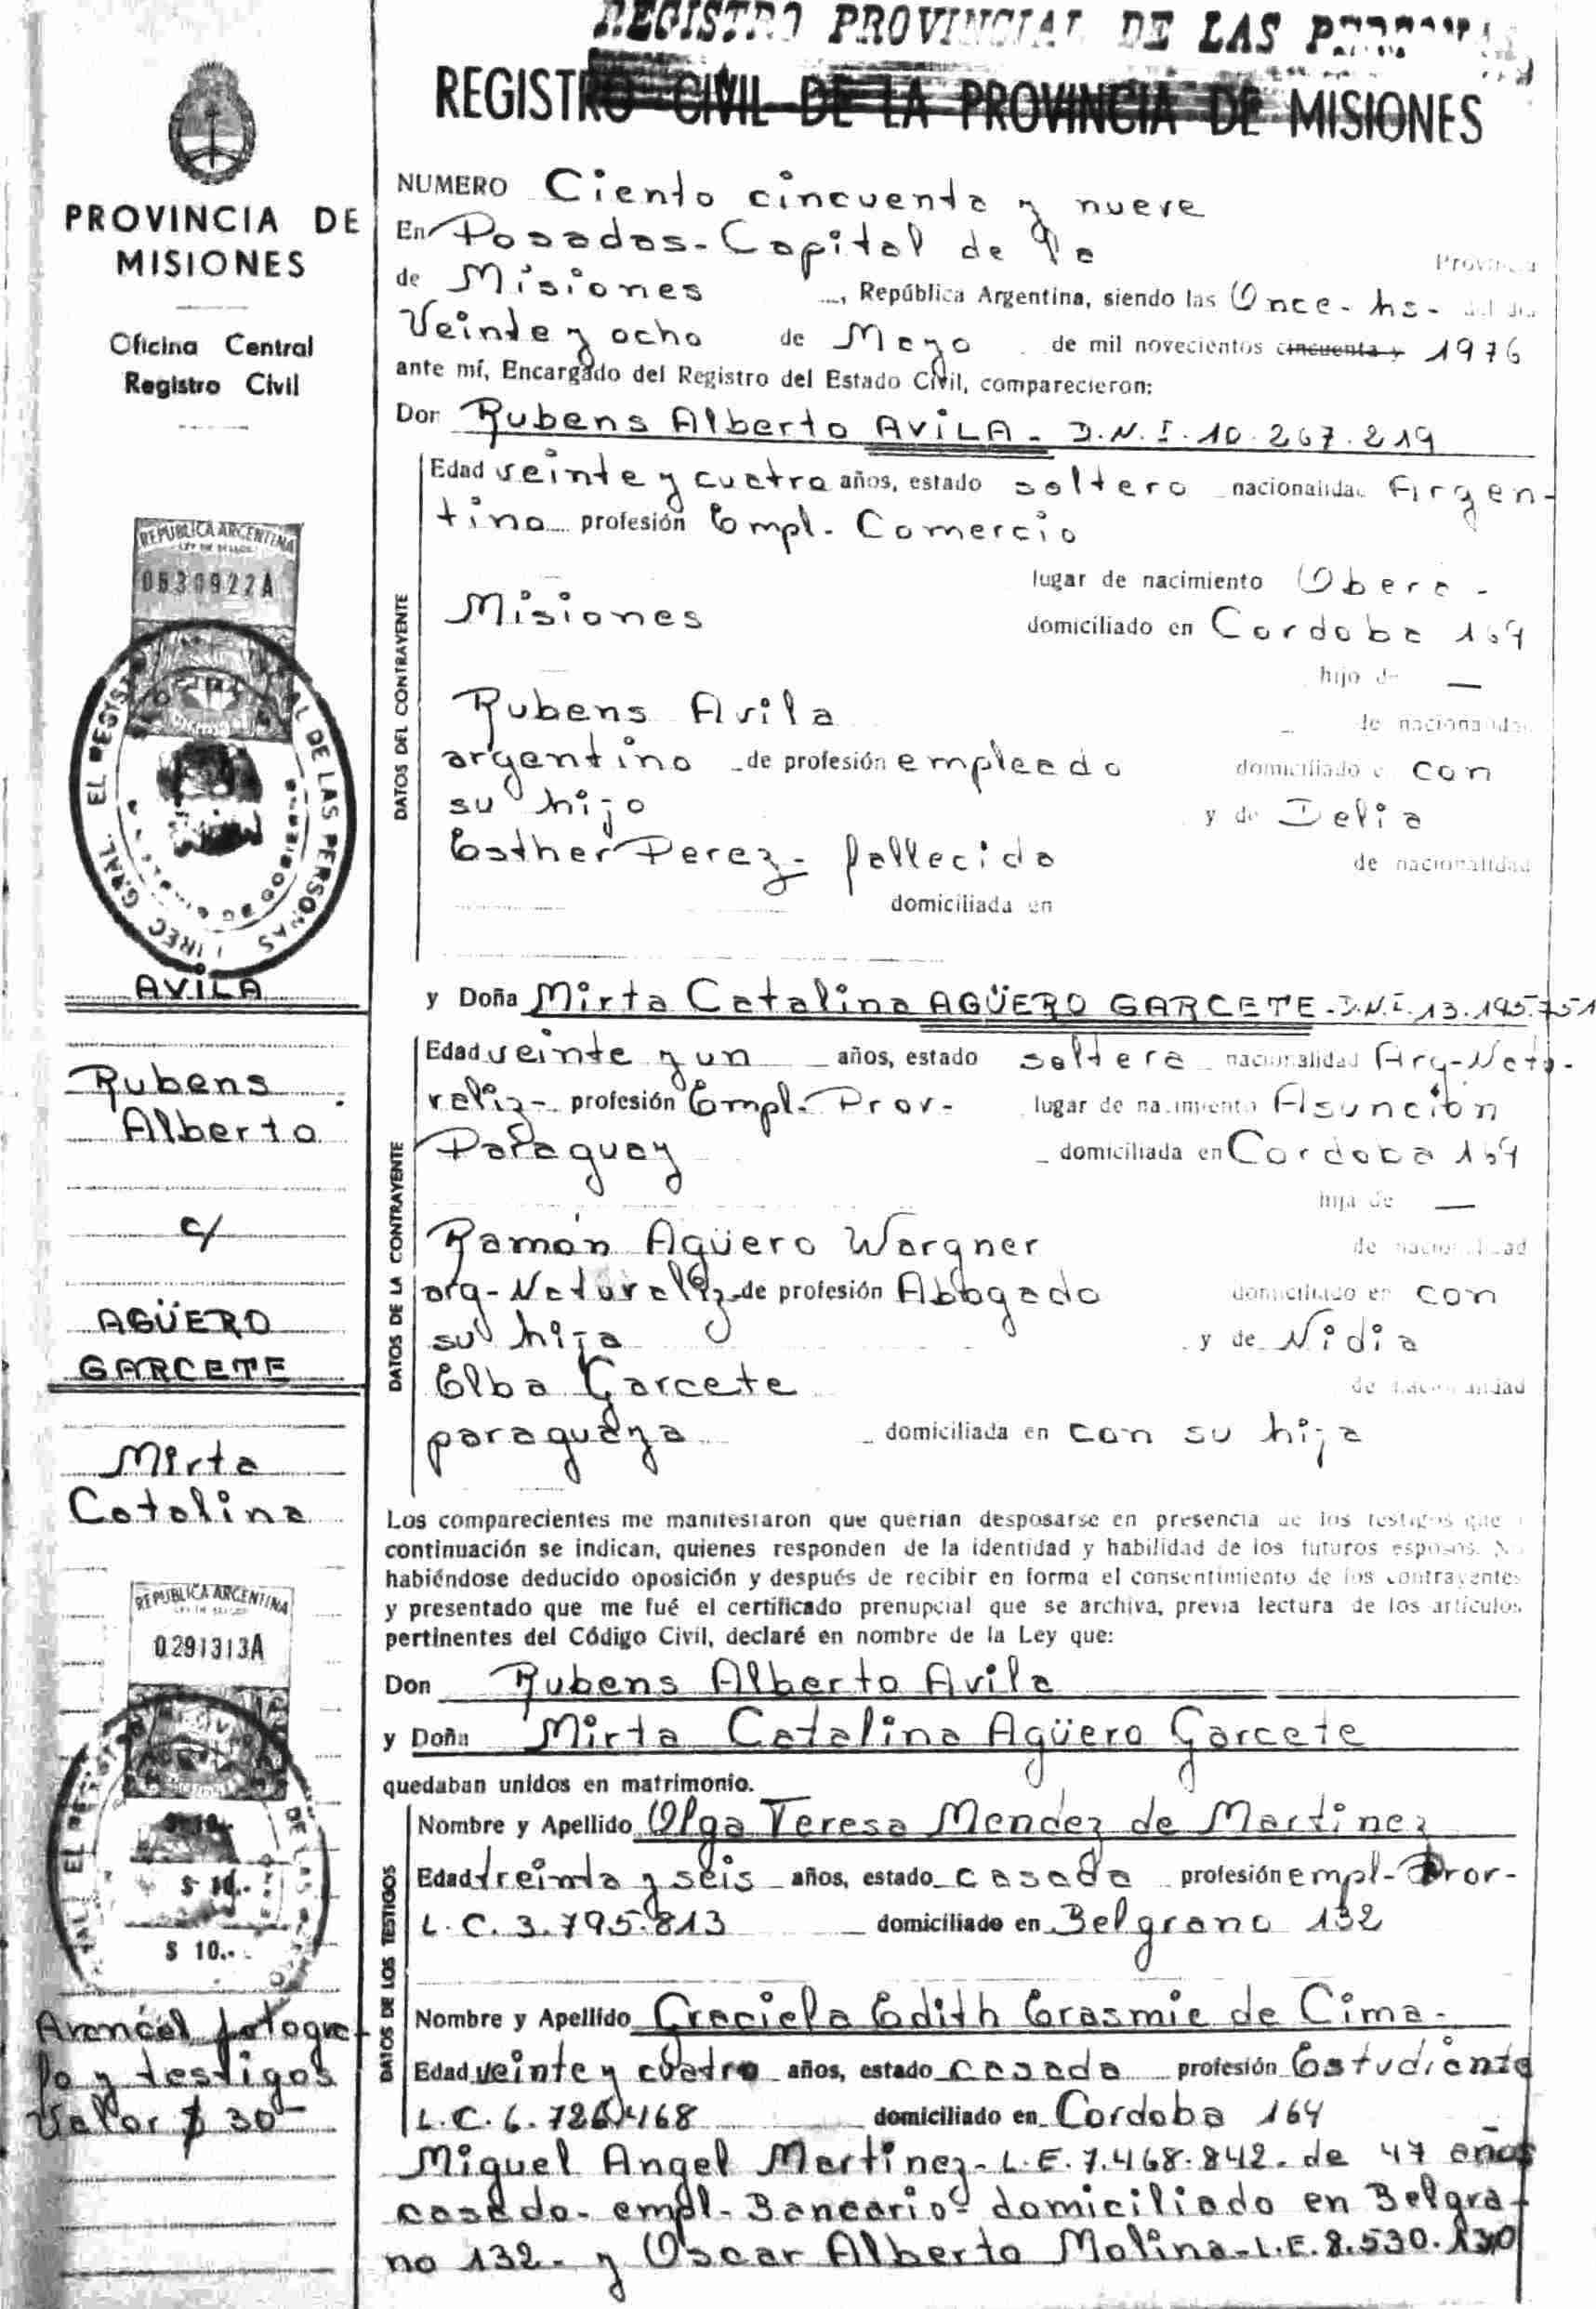 REGISTRO PROVINCIAL DE LAS PERSONAS
REGISTRO CIVIL DE LA PROVINCIA DE MISIONES
PROVINCIA DE
MISIONES
Oficina Central
Registro Civil
REPUBLICA ARGENTINA
LEY DE SELLOS
0630922A
AVILA
Rubens
Alberto
c/
AGÜERO
GARCETE
Mirta
Catalina
REPUBLICA ARGENTINA
0291313A
$ 10.-
$ 10.-
$ 10.-
Arancel fotogra-
fo y testigos
Valor $ 30-
NUMERO Ciento cincuenta y nueve
En Posadas - Capital de la Provincia
de Misiones, República Argentina, siendo las Once - hs - del dia
Veinte y ocho de Mayo de mil novecientos cincuenta y 1976
ante mí, Encargado del Registro del Estado Civil, comparecieron:
Don Rubens Alberto AVILA - D.N.I. 10.267.219
DATOS DEL CONTRAYENTE
Edad veinte y cuatro años, estado soltero nacionalidad Argen-
tina profesión Empl. Comercio
lugar de nacimiento Obera -
Misiones domiciliado en Cordoba 169
hijo de —
Rubens Avila de nacionalidad
argentino de profesión empleado domiciliado en con
su hijo y de Delia
Esther Perez - fallecida de nacionalidad
domiciliada en
y Doña Mirta Catalina AGÜERO GARCETE - D.N.I. 13.195.751
DATOS DE LA CONTRAYENTE
Edad veinte y un años, estado soltera nacionalidad Arg-Natu-
raliz- profesión Empl. Prov- lugar de nacimiento Asunción
Paraguay domiciliada en Cordoba 169
hija de —
Ramón Agüero Wargner de nacionalidad
arg-Naturaliz de profesión Abogado domiciliado en con
su hija y de Nidia
Elba Garcete de nacionalidad
paraguaya domiciliada en con su hija
Los comparecientes me manifestaron que querían desposarse en presencia de los testigos que
continuación se indican, quienes responden de la identidad y habilidad de los futuros esposos. No
habiéndose deducido oposición y después de recibir en forma el consentimiento de los contrayentes
y presentado que me fué el certificado prenupcial que se archiva, previa lectura de los artículos
pertinentes del Código Civil, declaré en nombre de la Ley que:
Don Rubens Alberto Avila
y Doña Mirta Catalina Agüero Garcete
quedaban unidos en matrimonio.
DATOS DE LOS TESTIGOS
Nombre y Apellido Olga Teresa Mendez de Martinez
Edad treinta y seis años, estado casada profesión empl-Prov-
L.C. 3.795.813 domiciliado en Belgrano 132
Nombre y Apellido Graciela Edith Erasmie de Cima -
Edad veinte y cuatro años, estado casada profesión Estudiante
L.C. 6.726.468 domiciliado en Cordoba 164
Miguel Angel Martinez - L.E. 7.468.842 - de 47 años
casado - empl - Bancario - domiciliado en Belgra-
no 132 - y Oscar Alberto Molina - L.E. 8.530.130